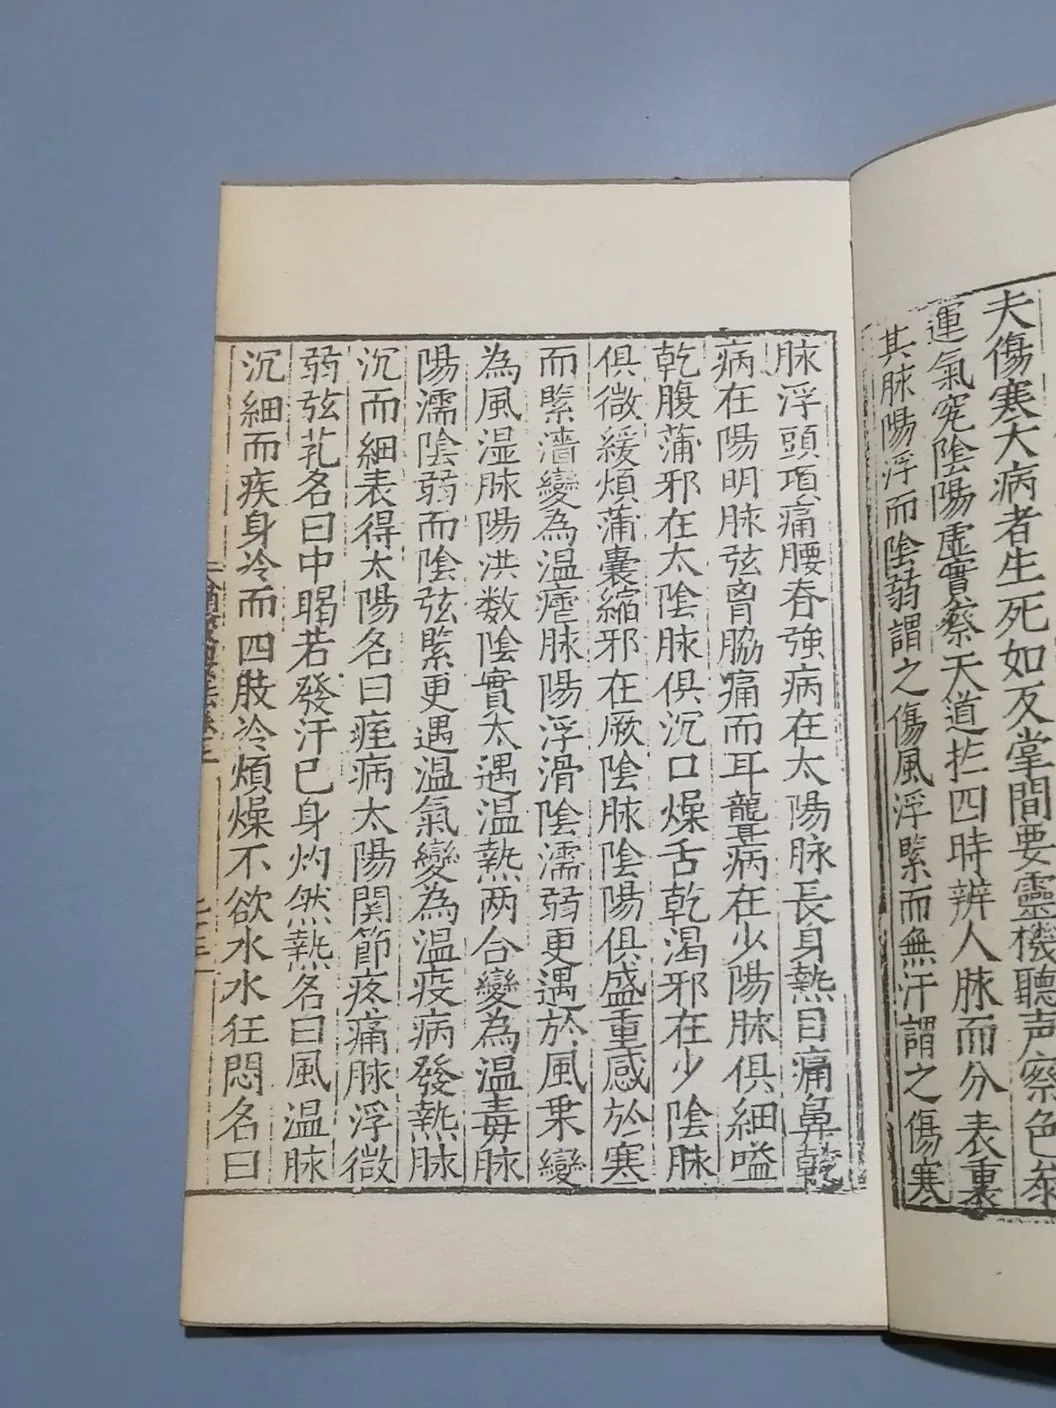 夫傷寒大病者生死如反掌間要靈機聽声察色叅
運氣究陰陽虛實察天道於四時辨人脉而分表裏
其脉陽浮而陰弱謂之傷風浮緊而無汗謂之傷寒
脉浮頭項痛腰脊強病在太陽脉長身熱目痛鼻乾
病在陽明脉弦胷脇痛而耳聾病在少陽脉俱細嗌
乾腹蒲邪在太陰脉俱沉口燥舌乾渴邪在少陰脉
俱微緩煩蒲囊縮邪在厥陰脉陰陽俱盛重感於寒
而緊濇變為温瘧脉陽浮滑陰濡弱更遇於風乗變
為風湿脉陽洪数陰實太遇温熱两合變為温毒脉
陽濡陰弱而陰弦緊更遇温氣變為温疫病發熱脉
沉而細表得太陽名曰痓病太陽関節疼痛脉浮微
弱弦芤名曰中暍若發汗已身灼然熱名曰風温脉
沉細而疾身冷而四肢冷煩燥不欲水水狂悶名曰